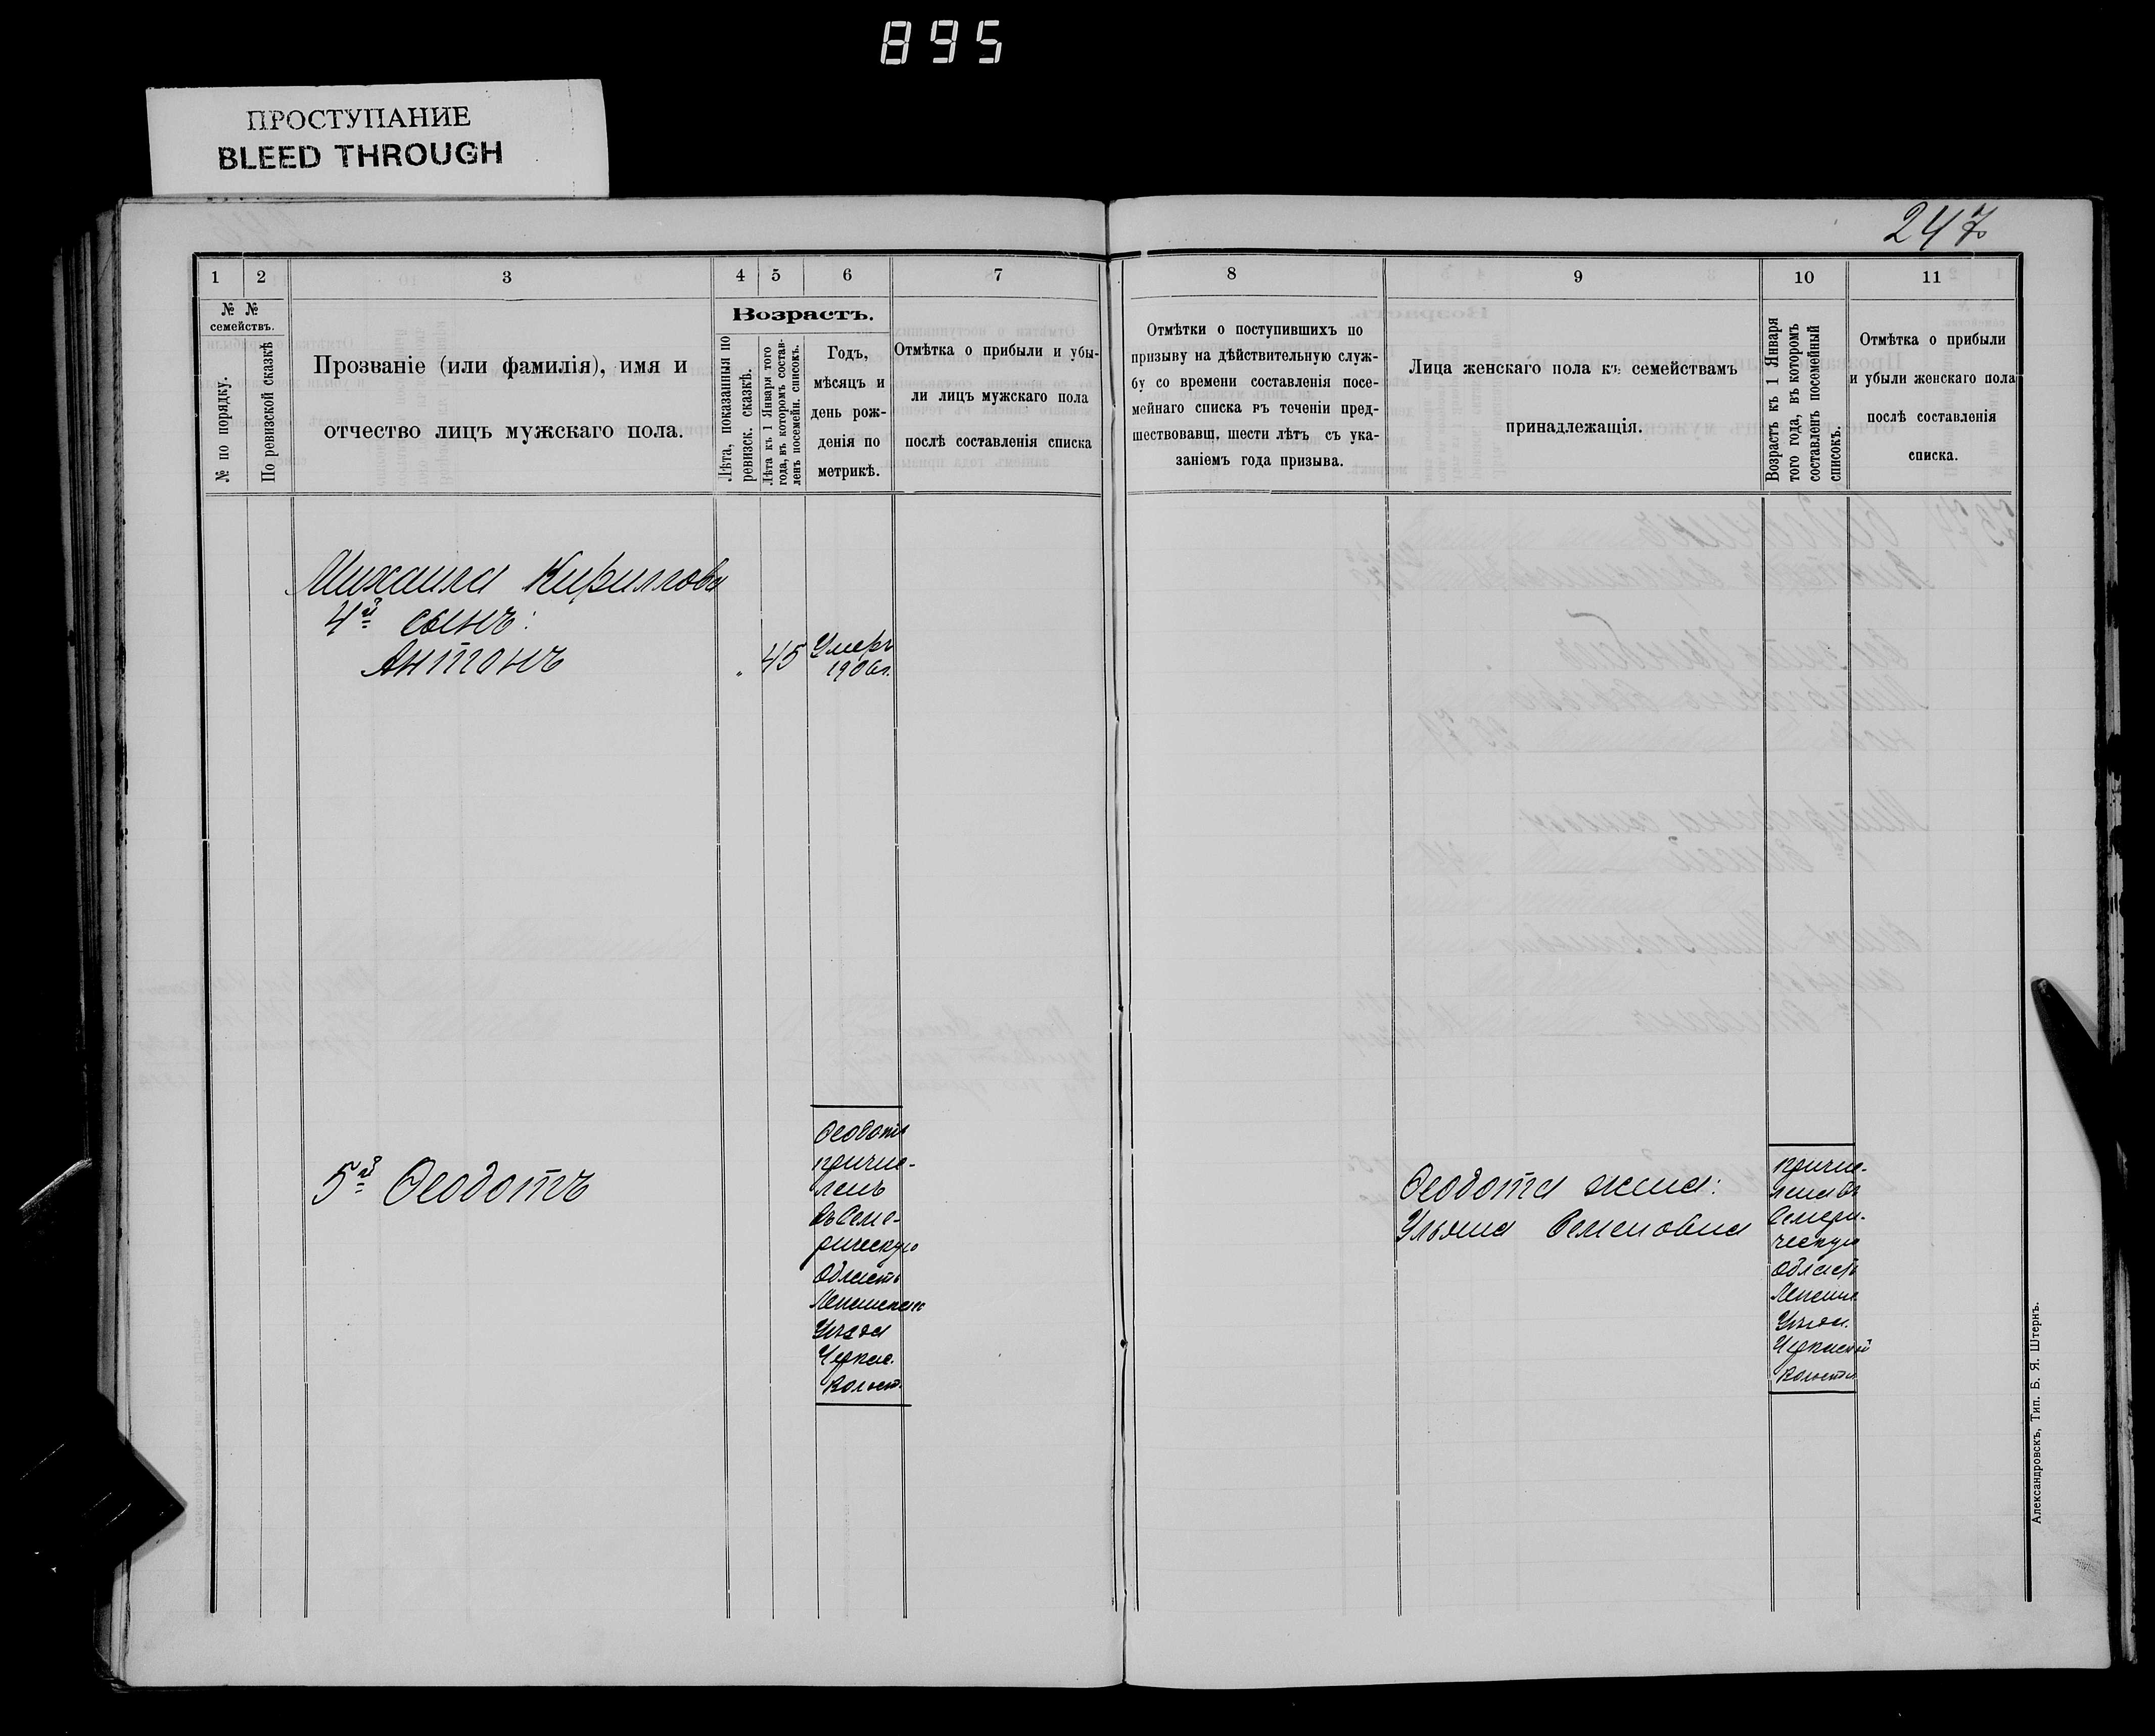 895
ПРОСТУПАНИЕ
BLEED THROUGH
247
1
2
3
4
5
6
7
8
9
10
11
№ №
семействъ.
№ по порядку.
По ревизской сказкѣ
Прозваніе (или фамилія), имя и
отчество лицъ мужскаго пола.
Возрастъ.
Лѣта, показанныя по
ревизск. сказкѣ.
Лѣта къ 1 Января того
года, въ которомъ состав-
ленъ посемейн. списокъ.
Годъ,
мѣсяцъ и
день рож-
денія по
метрикѣ.
Отмѣтка о прибыли и убы-
ли лицъ мужскаго пола
послѣ составленія списка
Отмѣтки о поступившихъ по
призыву на дѣйствительную служ-
бу со времени составленія посе-
мейнаго списка въ теченіи пред-
шествовавш, шести лѣтъ съ ука-
заніемъ года призыва.
Лица женскаго пола къ семействамъ
принадлежащія.
Возрастъ къ 1 Января
того года, въ которомъ
составленъ посемейный
списокъ.
Отмѣтка о прибыли
и убыли женскаго пола
послѣ составленія
списка.
Михаила Кириллова
4й сынъ:
Антонъ
45
Умеръ
1906г.
5й Ѳеодотъ
Ѳеодотъ
причис-
ленъ
въ Семи-
рическую
Область
Уѣзда
Черкас.
Волост.
Ѳеодота жена:
Ульяна Семеновна
причис-
лена въ
Семири-
ческую
Область
Уѣзда.
Черкаской
Волости
Александровскъ, Тип. Б. Я. Штернъ.